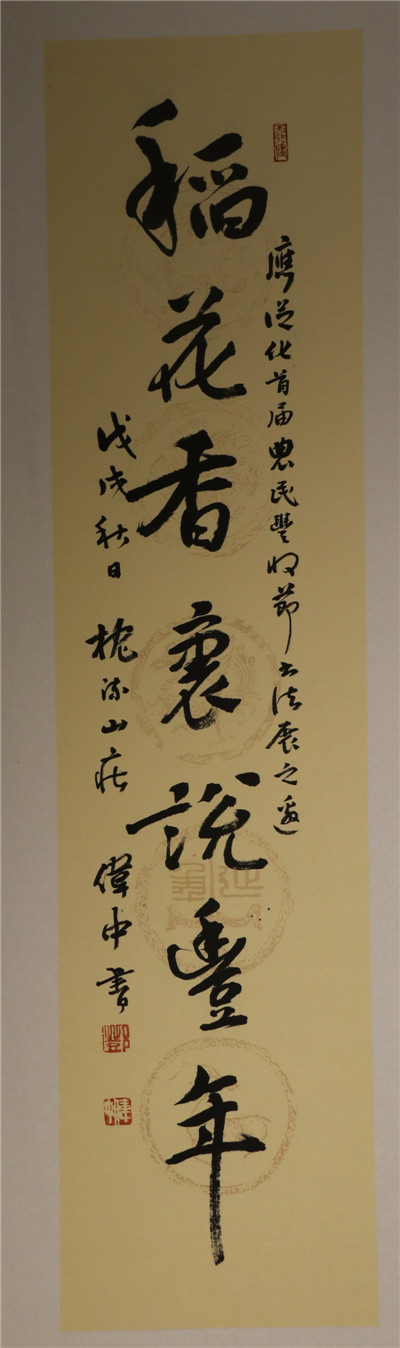 應從化首届農民豐收節书法展之邀
稻花香裏說豐年
戊戌秋日枕流山莊
偉中書